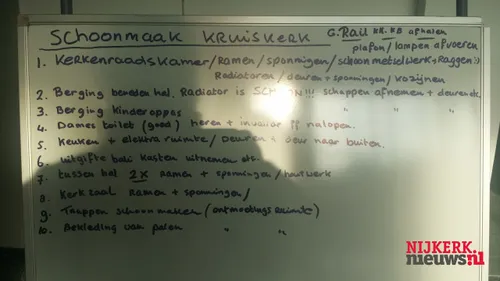 SCHOONMAAK KRUISKERK
G. Rau KR. KB afhalen
plafon / lampen afvoeren
1. Kerkenraadskamer / Ramen / sponnigen / schoon metselwerk + Raggen
Radiatoren / deuren + sponningen / kozijnen
2. Berging beneden hal. Radiator is SCHOON!!! schappen afnemen + deuren etc.
3. Berging kinderoppas " "
4. Dames toilet (goed) heren + invalide nalopen.
5. Keuken + elektra ruimte / Deuren + deur naar buiten.
6. uitgifte bali kasten uitnemen etc.
7. tussen hal 2x Ramen + sponningen / houtwerk
8. Kerkzaal Ramen + sponningen /
9. Trappen schoonmaken (ontmoetings ruimte)
10. Bekleding van palen " "
NIJKERK
nieuws.nl